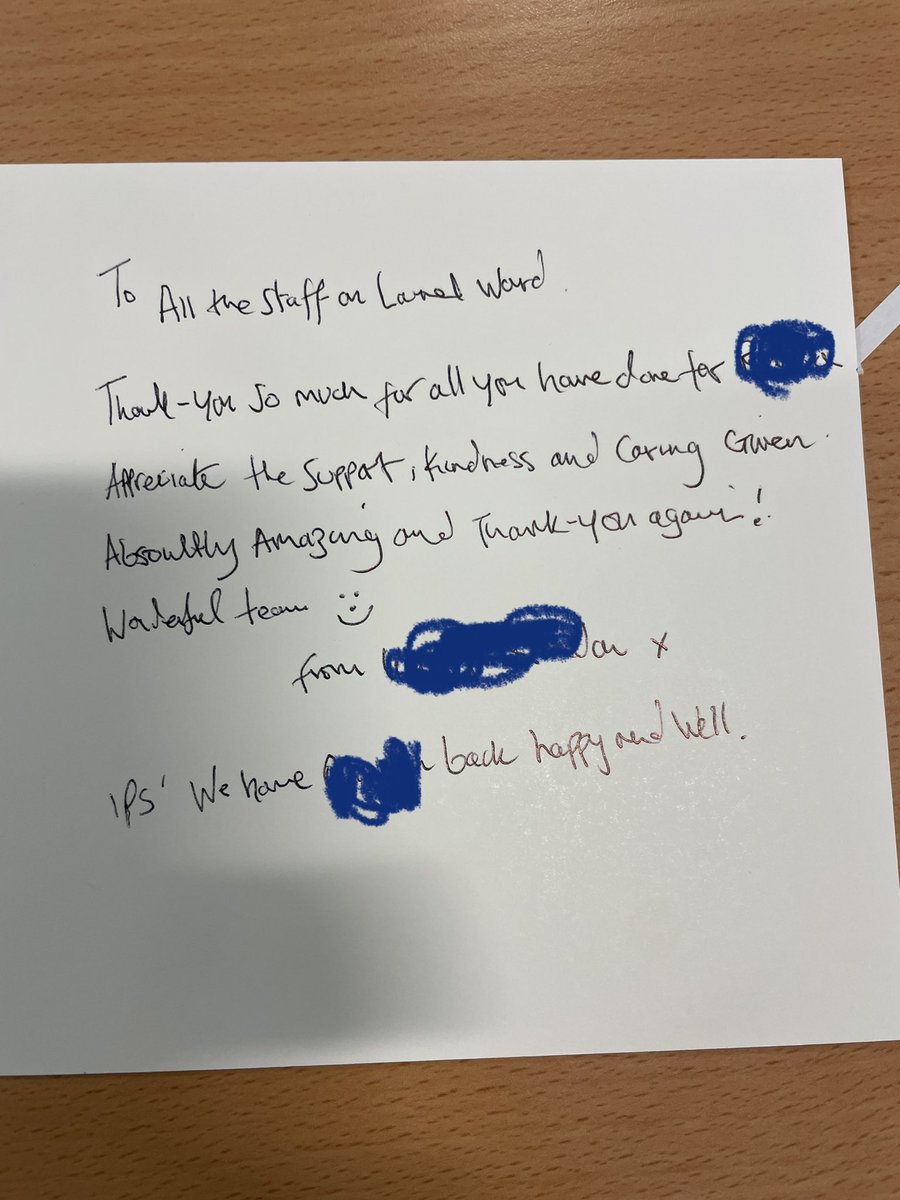 To All the Staff on Laurel Ward.
Thank-you so much for all you have done for
Appreciate the support, kindness and Caring Given.
Absoultly Amazing and Thank-you again!
Wonderful team
from
'PS' We have back happy and Well.